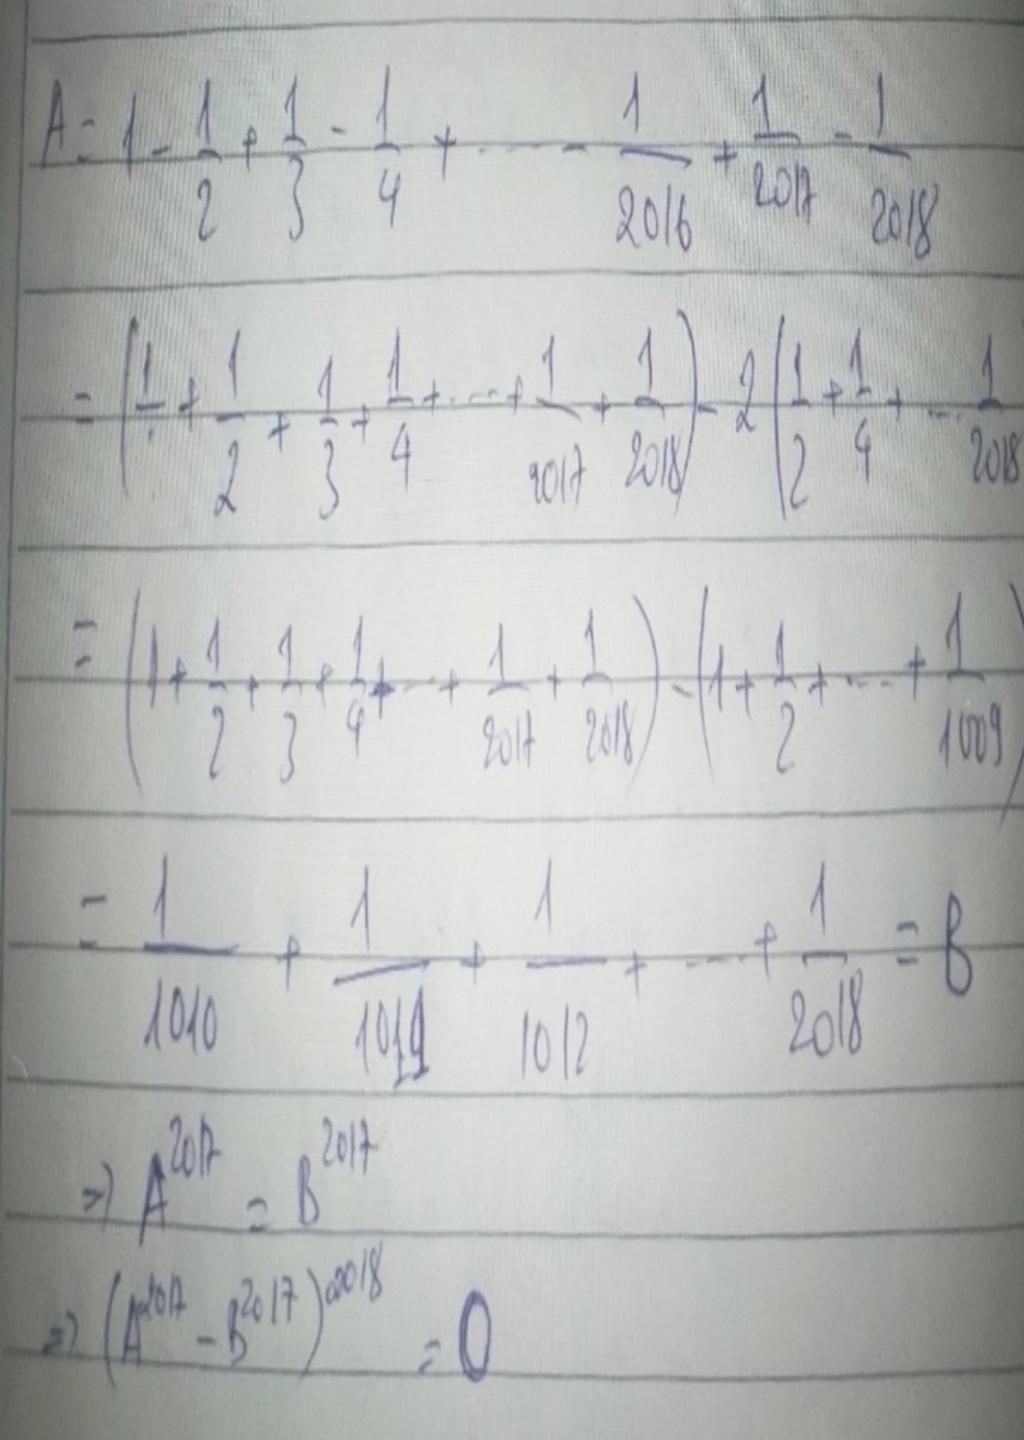 A = 1 - 1/2 + 1/3 - 1/4 + ..... - 1/2016 + 1/2017 - 1/2018
= (1/1 + 1/2 + 1/3 + 1/4 + .... + 1/2017 + 1/2018) - 2(1/2 + 1/4 + ... 1/2018
= (1 + 1/2 + 1/3 + 1/4 + ... + 1/2017 + 1/2018) - (1 + 1/2 + .... + 1/1009)
= 1/1010 + 1/1011 + 1/1012 + .... + 1/2018 = B
=> A^2017 = B^2017
=> (A^2017 - B^2017)^2018 = 0